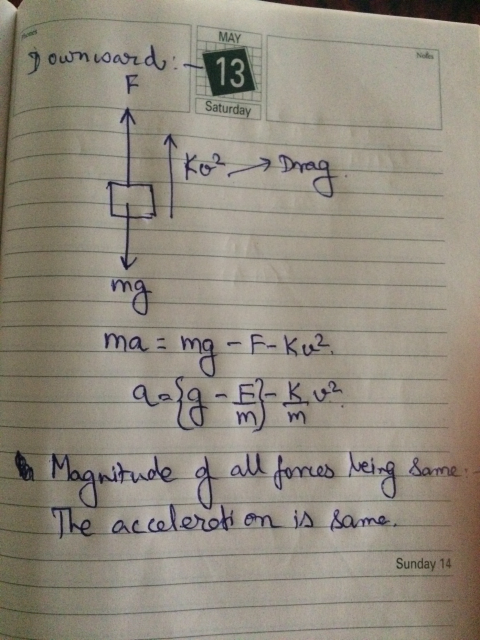 MAY
Notes
Downward:-
13
F
Saturday
Kv² → Drag.
mg
ma = mg - F - Kv².
a = {g - F/m} - K/m v².
Magnitude of all forces being same:-
The acceleration is same.
Sunday 14